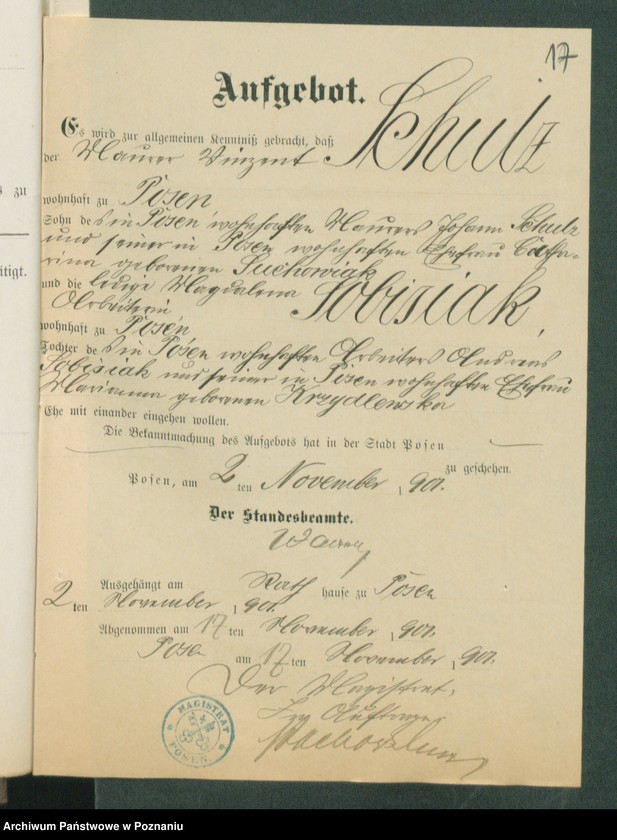 17
Aufgebot.
Es wird zur allgemeinen Kenntniß gebracht, daß
der Maurer Vinzent Schulz
wohnhaft zu Posen
Sohn des in Posen wohnhaften Maurers Johann Schulz
und seiner in Posen wohnhaften Ehefrau Catha-
rina geborenen Suchowiak
und die ledige Magdalena Sobisiak,
Arbeiterin
wohnhaft zu Posen
Tochter des in Posen wohnhaften Arbeiters Andreas
Sobisiak und seiner in Posen wohnhaften Ehefrau
Marianna geborenen Krzydlewska
Ehe mit einander eingehen wollen.
Die Bekanntmachung des Aufgebots hat in der Stadt Posen
zu geschehen.
Posen, am 2ten November 1901.
Der Standesbeamte.
Ausgehängt am Rathhause zu Posen
2ten November 1901.
Abgenommen am 17ten November 1901.
Posen am 17ten November 1901.
Der Magistrat.
Im Auftrage
MAGISTRAT
POSEN.
s zu
itigt.
Archiwum Państwowe w Poznaniu